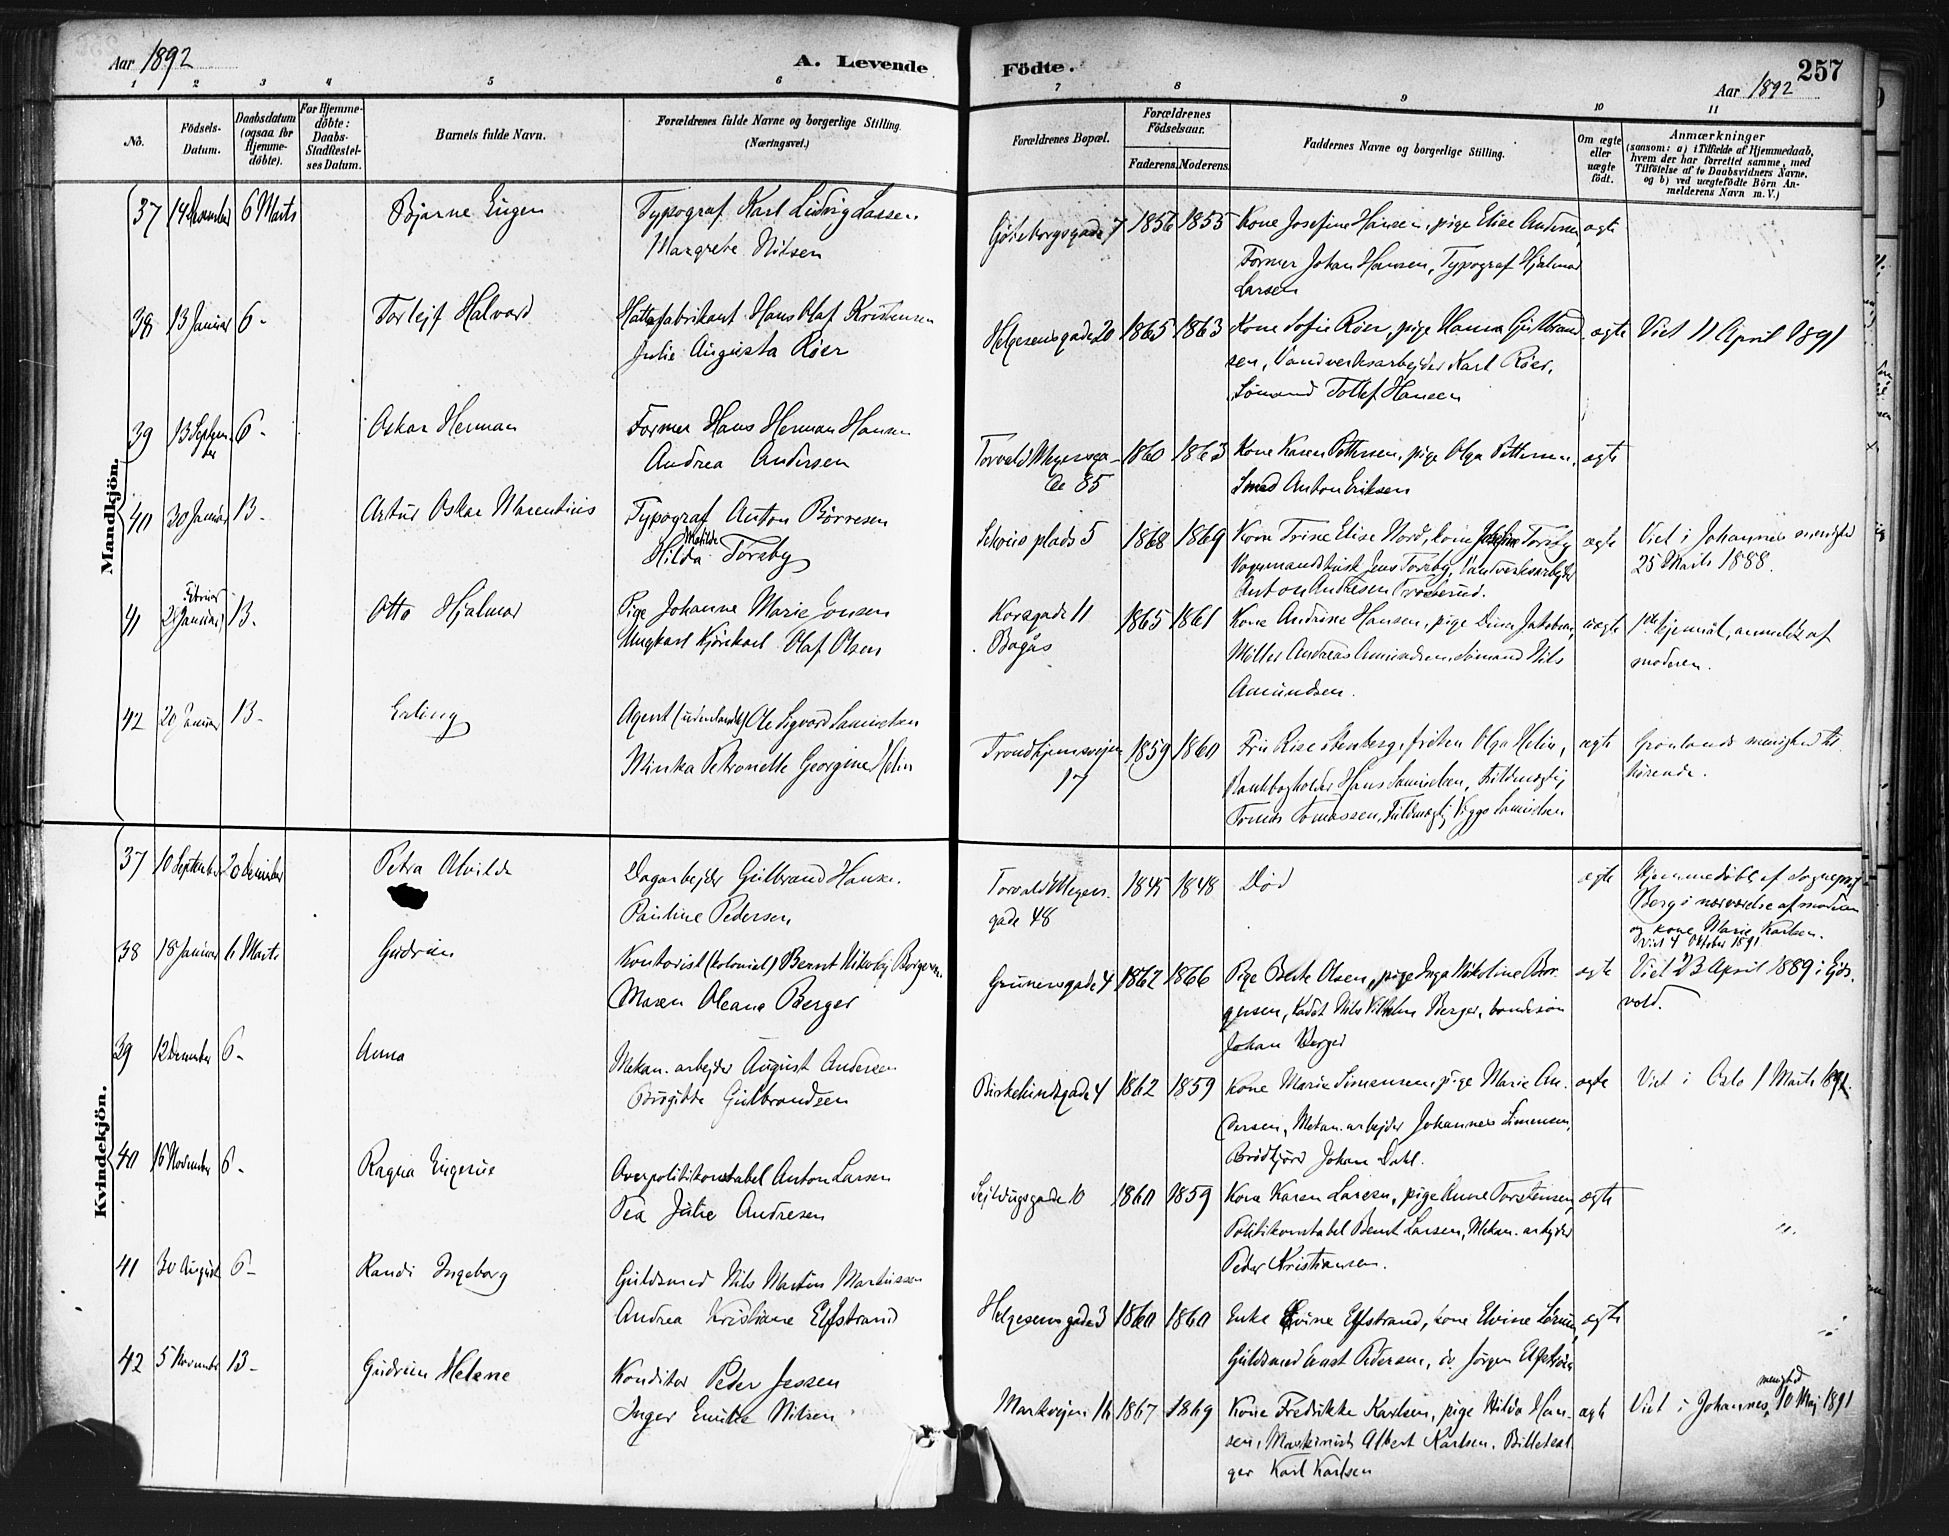 Aar 1892
A. Levende
Födte.
257
Aar 1892
1 2 3 4 5 6 7 8 9 10 11
No.
Födsels-
Datum.
Daabsdatum
(ogsaa for
Hjemme-
döbte).
For Hjemme-
döbte:
Daabs-
Stadfestel-
ses Datum.
Barnets fulde Navn.
Forældrenes fulde Navne og borgerlige Stilling.
(Næringsvei.)
Forældrenes Bopæl.
Forældrenes
Födselsaar.
Faderens. Moderens.
Faddernes Navne og borgerlige Stilling.
Om ægte
eller
uægte
födt.
Anmærkninger
(saasom: a) i Tilfælde af Hjemmedaab,
hvem der har forrettet samme, med
Tilföielse af to Daabsvidners Navne,
og b) ved uægtefödte Börn An-
melderens Navn m. V.)
Mandkjön.
37 14 December 6 Marts Bjarne Eugen Typograf Karl Ludvig Larsen
Margrete Nilsen
Göteborgsgade 7 1856 1855 Kone Josefine Hansen, pige Elise Andersen, ægte
Former Johan Hansen, Typograf Hjalmar
Larsen
38 13 Januar 6 - Torlejf Halvard Hattefabrikant Hans Olaf Kristensen
Julie Augusta Röer
Helgesensgade 20 1865 1863 Kone Sofie Röer, pige Hanna Gulbrand- ægte Viet 11 April 1891
sen, Vandverksarbejder Karl Röer,
Sömand Tollef Hansen
39 13 Septem-
ber 6 - Oskar Herman Former Hans Herman Hansen
Andrea Andersen
Torvald Meyersga-
de 85 1860 1863 Kone Karen Pettersen, pige Olga Pettersen, ægte
Smed Anton Eriksen
40 30 Januar 13 - Artur Oskar Marentius Typograf Anton Börresen
Hilda Matilde Torsby
Schous plads 5 1868 1869 Kone Trine Elise Nord, kone Josefine Torsby ægte Viet i Johannes menighed
25 Marts 1888.
Vognmandskusk Jens Torsby, Vandverksarbejder
Anton Andresen
41 2 Februar 13. Otto Hjalmar Pige Johanne Marie Jonsen
Ungkarl Kjörekarl Olaf Olsen
Korsgade 11
Bogås 1865 1861 Kone Andrine Hansen, pige Dina Jakobsen, uægte 1ste lejermål, anmeldt af
moderen.
Möller Andreas Amundsen, Sömand Nils
Amundsen.
42 20 Januar 13 - Erling Agent (udenlandsk) Ole Sigvard Samuelsen
Minka Petronelle Georgine Helin
Trondhjemsvejen
17 1859 1860 Fru Rise Stenberg, fröken Olga Helin, ægte Grönlands menighed til-
hörende.
Bankbogholder Hans Samuelsen, Fuldmægtig
Tomas Tomassen, Fuldmægtig Viggo Samuelsen
Kvindekjön.
37 10 September 20 December Petra Alvilde Dagarbejder Gulbrand Hansen.
Pauline Pedersen
Torvald Meyers-
gade 48 1845 1848 Död ægte Hjemmedöbt af Sogneprest
Berg i nærværelse af moderen
og kone Marie Karlsen.
Viet 4 Oktober 1891
38 18 Januar 6 Marts Gudrun Kontorist (kolonial) Bernt Nikolaj Borgersen
Maren Oleana Berger
Grunersgade 4 1862 1866 Pige Berte Olsen, pige Inga Nikoline Bor- ægte Viet 23 April 1889 i Eids-
vold.
gersen, Kadet Nils Vilhelm Berger, bondesön
Johan Berger
39 12 December 6 - Anna Mekan. arbejder August Andersen
Birgitte Gulbrandsen
Birkelundsgade 4 1862 1859 Kone Marie Simensen, pige Marie An- ægte Viet i Oslo 1 Marts 1891.
dersen, Mekan. arbejder Johannes Simensen,
Brödkjörer Johan Dahl.
40 16 November 6 - Ragna Eugenie Overpolitikonstabel Anton Larsen
Pea Julie Andresen
Sejldugsgade 10 1860 1859 Kone Karen Larsen, pige Anne Torstensen, ægte
Politikonstabel Bernt Larsen, Mekan. arbejder
Peder Kristiansen.
41 30 August 6 - Randi Ingeborg Guldsmed Nils Martin Martinssen
Andrea Kristiane Elfstrand
Helgesensgade 3 1860 1860 Enke Evine Elfstrand, kone Elvine Sörum, ægte
Guldsmed Ernst Pedersen, do. Jörgen Elfström
42 5 November 13 - Gudrun Helene Konditor Peder Jessen
Inger Emilie Nilsen
Markvejen 16 1867 1869 Kone Fredrikke Karlsen, pige Hilda Han- ægte Viet i Johannes menighed 10 Maj 1891
sen, Maskinist Albert Karlsen, Billetsæl-
ger Karl Karlsen